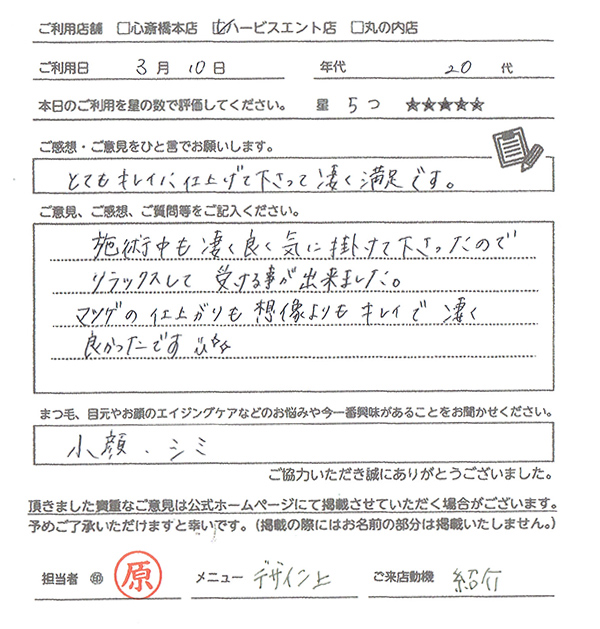 ご利用店舗 □心斎橋本店 ☑ハービスエント店 □丸の内店
ご利用日 3月 10日 年代 20代
本日のご利用を星の数で評価してください。 星 5つ ★★★★★
ご感想・ご意見をひと言でお願いします。
とてもキレイに仕上げて下さって凄く満足です。
ご意見、ご感想、ご質問等をご記入ください。
施術中も凄く良く気に掛けて下さったので
リラックスして受ける事が出来ました。
マツゲの仕上がりも想像よりもキレイで凄く
良かったです
まつ毛、目元やお顔のエイジングケアなどのお悩みや今一番興味があることをお聞かせください。
小顔、シミ
ご協力いただき誠にありがとうございました。
頂きました貴重なご意見は公式ホームページにて掲載させていただく場合がございます。
予めご了承いただけますと幸いです。（掲載の際にはお名前の部分は掲載いたしません。）
担当者 ㊞ 原 メニュー デザイン上 ご来店動機 紹介